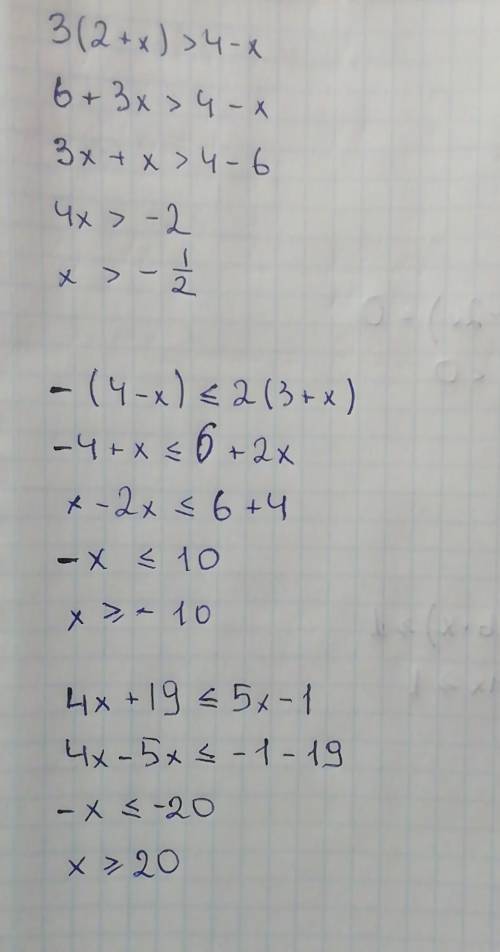 3(2+x)>4-x
6+3x>4-x
3x+x>4-6
4x>-2
x>-1/2
-(4-x)≤2(3+x)
-4+x≤6+2x
x-2x≤6+4
-x≤10
x≥-10
4x+19≤5x-1
4x-5x≤-1-19
-x≤-20
x≥20